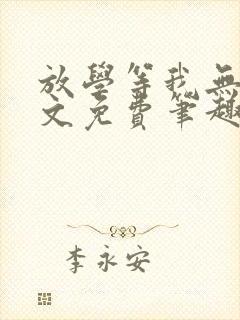 放學等我無
文免費筆趣
李永安